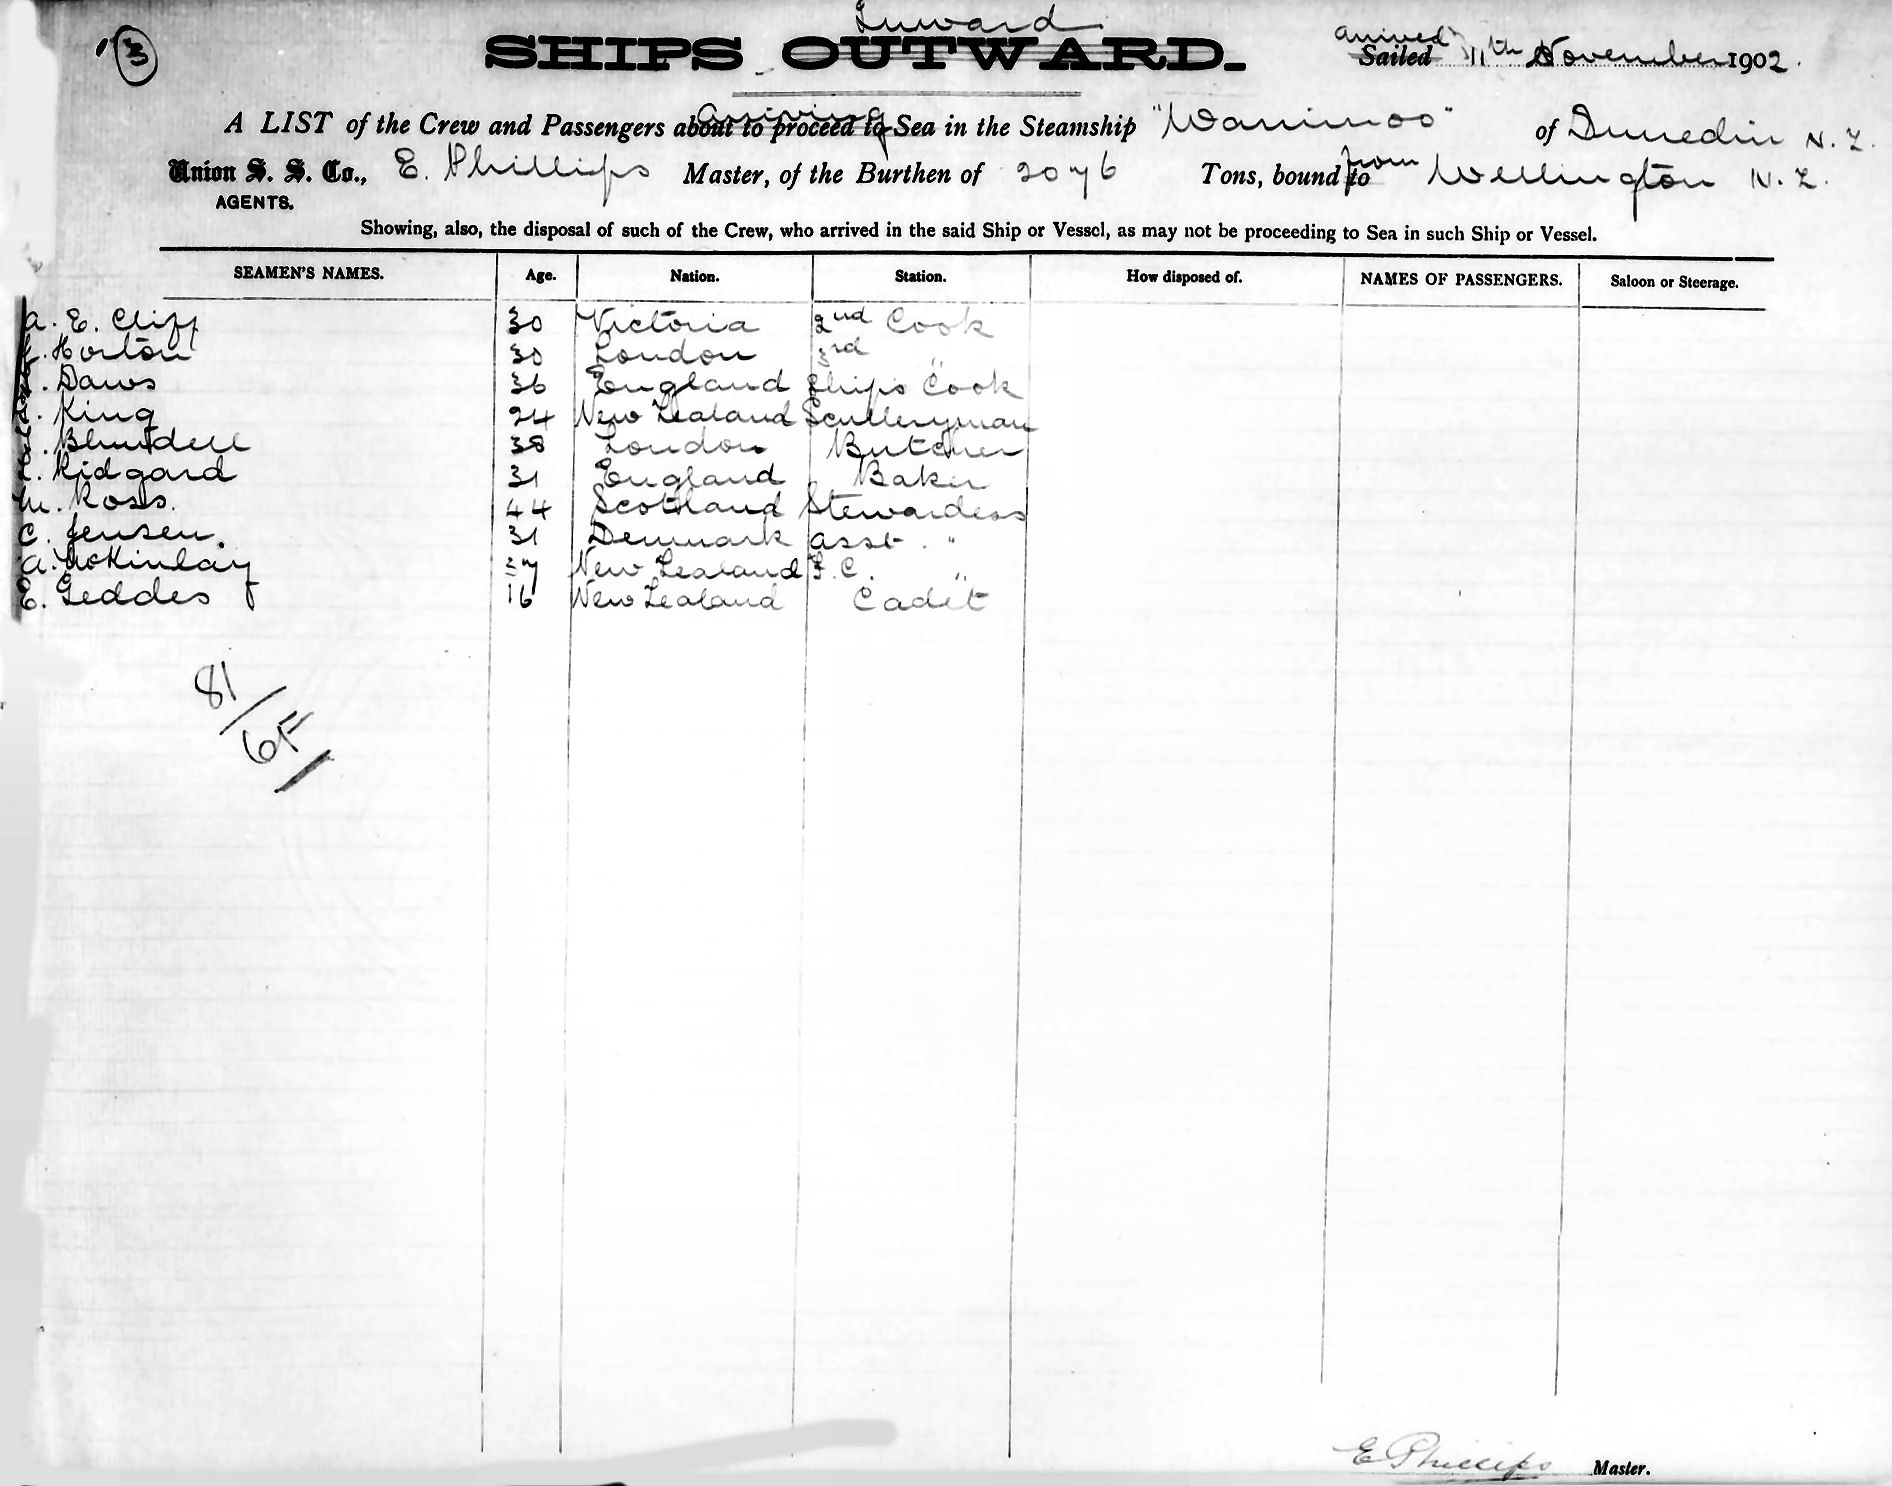 3
Inward
SHIPS OUTWARD.
arrived
Sailed 11th November 1902.
Arriving
A LIST of the Crew and Passengers about to proceed to Sea in the Steamship "Warrimoo" of Dunedin N.Z.
Union S. S. Co., E. Phillips Master, of the Burthen of 2076 Tons, bound to from Wellington N.Z.
AGENTS.
Showing, also, the disposal of such of the Crew, who arrived in the said Ship or Vessel, as may not be proceeding to Sea in such Ship or Vessel.
SEAMEN'S NAMES. Age. Nation. Station. How disposed of. NAMES OF PASSENGERS. Saloon or Steerage.
A. E. Cliff 30 Victoria 2nd Cook
Horton 30 London 3rd "
Daws 36 England Ships Cook
King 24 New Zealand Sculleryman
Blundell 38 London Butcher
Kidgard 31 England Baker
M. Ross. 44 Scotland Stewardess
C. Jensen. 31 Denmark asst. "
A. McKinlay 37 New Zealand F.C. "
E. Geddes 16 New Zealand Cadet
81/6F
E Phillips Master.